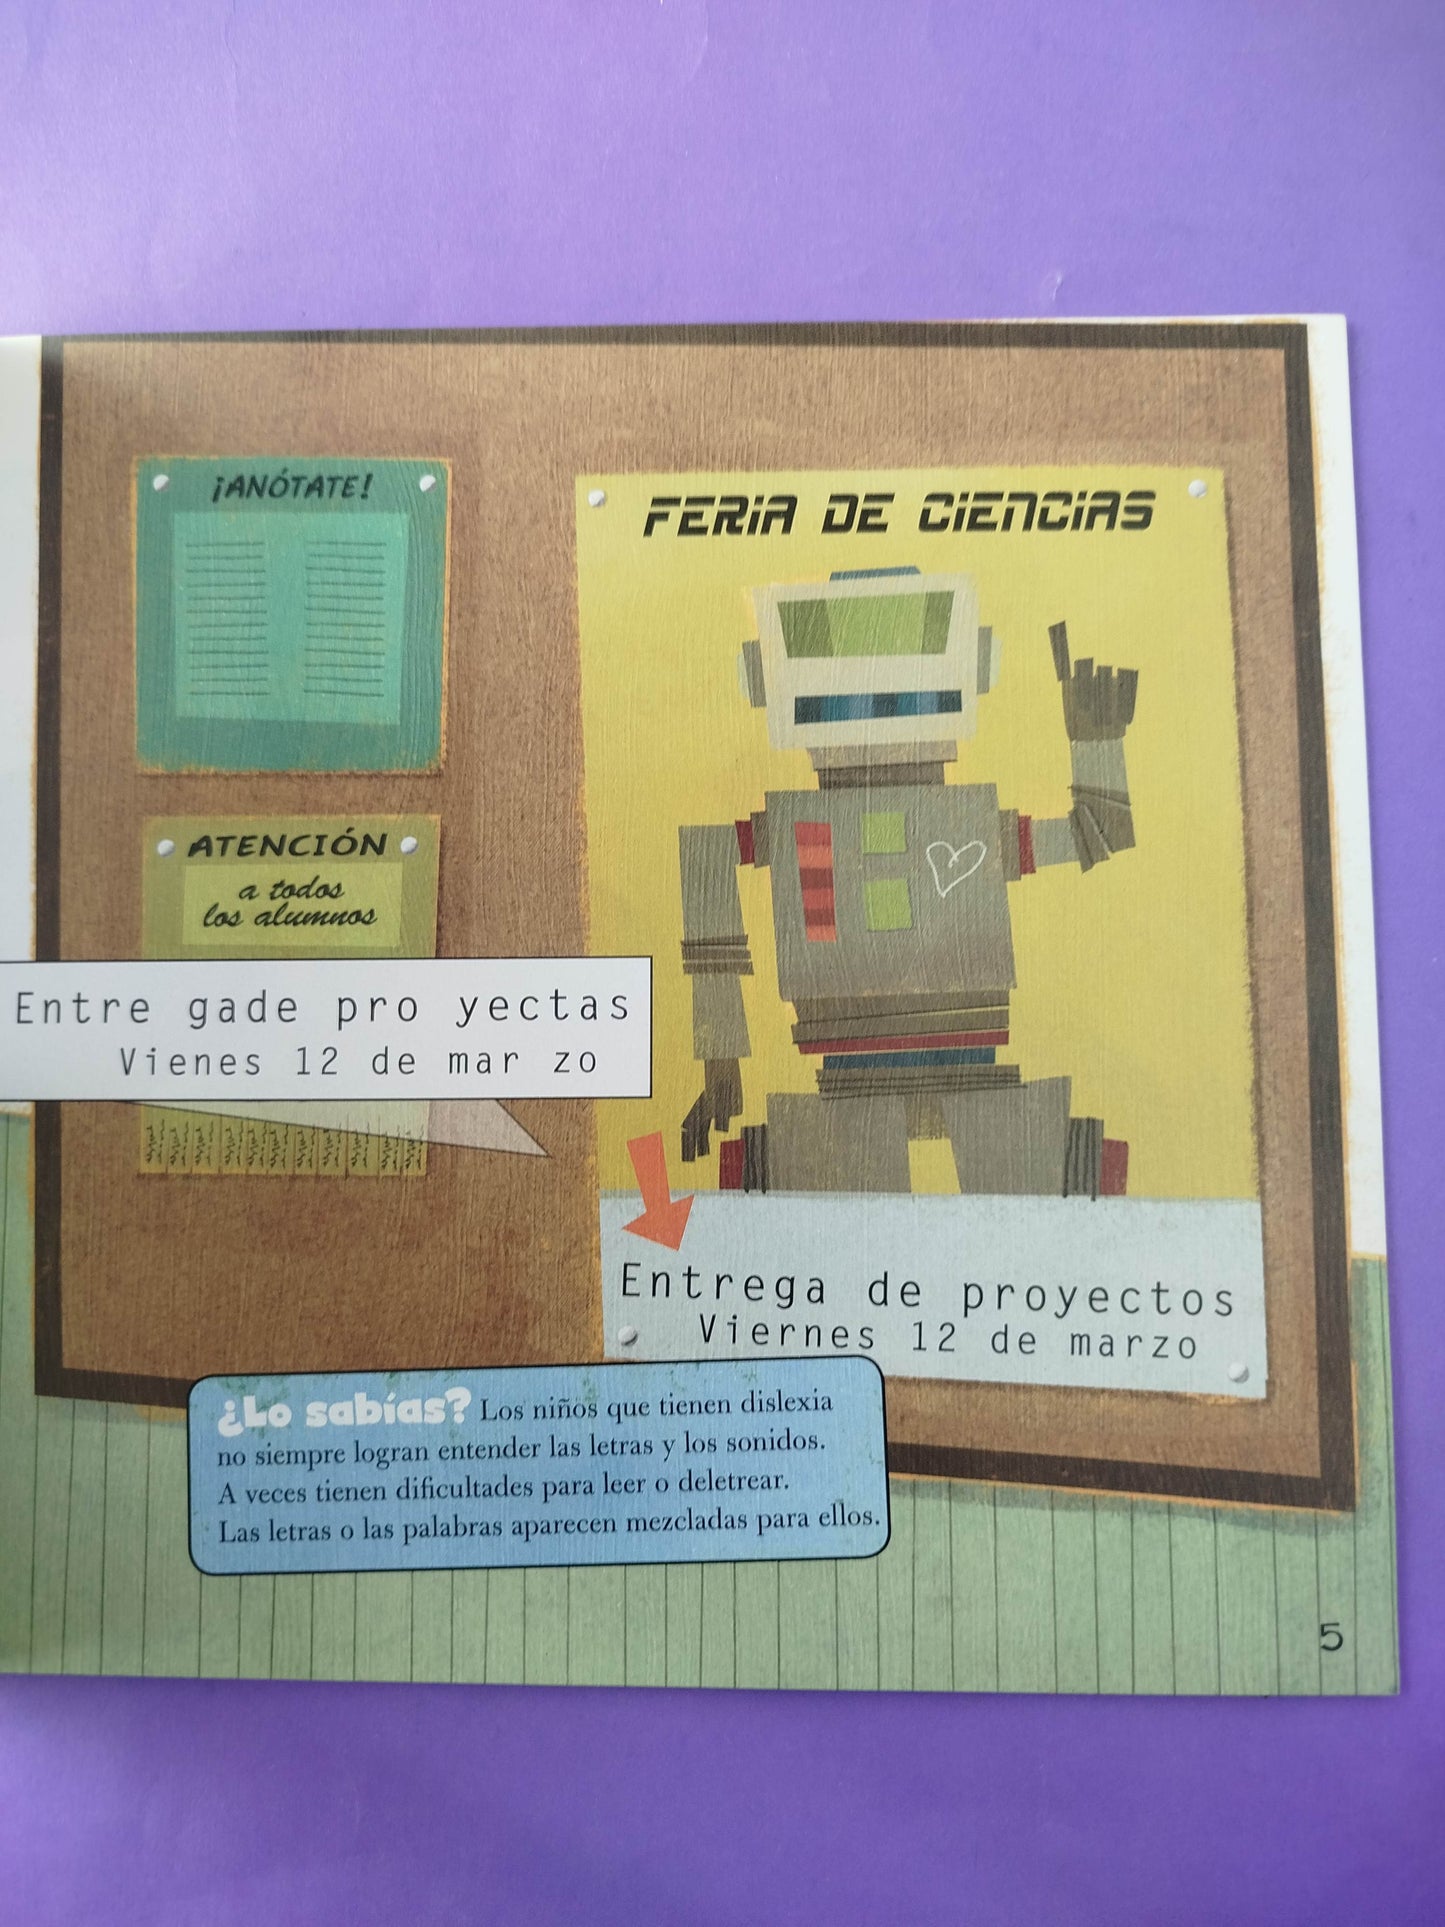 ¡ANÓTATE!
ATENCIÓN
a todos
los alumnos
Entre gade pro yectas
Vienes 12 de mar zo
FERIA DE CIENCIAS
Entrega de proyectos
Viernes 12 de marzo
¿Lo sabías? Los niños que tienen dislexia
no siempre logran entender las letras y los sonidos.
A veces tienen dificultades para leer o deletrear.
Las letras o las palabras aparecen mezcladas para ellos.
5